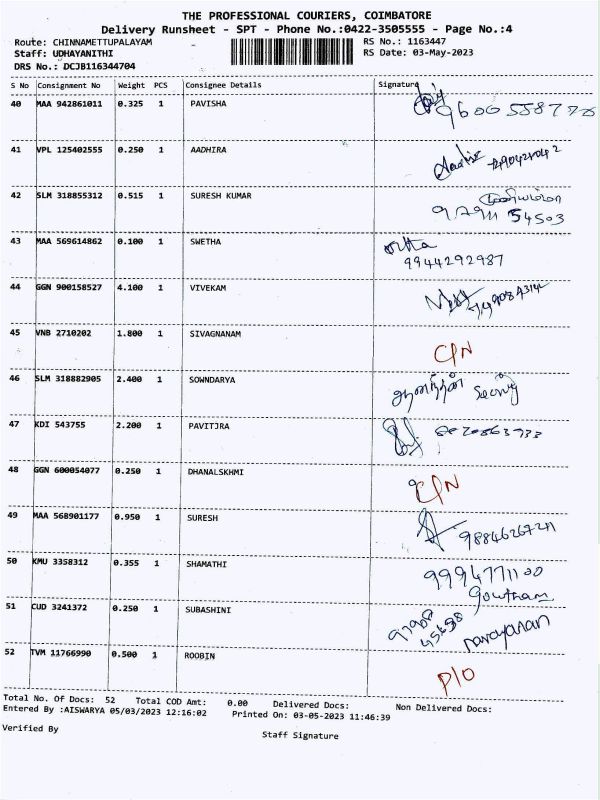 THE PROFESSIONAL COURIERS, COIMBATORE
Delivery Runsheet - SPT - Phone No.:0422-3505555 - Page No.:4
Route: CHINNAMETTUPALAYAM RS No.: 1163447
Staff: UDHAYANITHI RS Date: 03-May-2023
DRS No.: DCJB116344704
S No Consignment No Weight PCS Consignee Details Signature
40 MAA 942861011 0.325 1 PAVISHA
41 VPL 125402555 0.250 1 AADHIRA
42 SLM 318855312 0.515 1 SURESH KUMAR
43 MAA 569614862 0.100 1 SWETHA
9944292987
44 GGN 900158527 4.100 1 VIVEKAM
45 VNB 2710202 1.800 1 SIVAGNANAM
C/N
46 SLM 318882905 2.400 1 SOWNDARYA
47 KDI 543755 2.200 1 PAVITJRA
48 GGN 600054077 0.250 1 DHANALSKHMI
C/N
49 MAA 568901177 0.950 1 SURESH
50 KMU 3358312 0.355 1 SHAMATHI
9994771100
Gowtham
51 CUD 3241372 0.250 1 SUBASHINI narayanan
52 TVM 11766990 0.500 1 ROOBIN
P/O
Total No. Of Docs: 52 Total COD Amt: 0.00 Delivered Docs: Non Delivered Docs:
Entered By :AISWARYA 05/03/2023 12:16:02 Printed On: 03-05-2023 11:46:39
Verified By Staff Signature